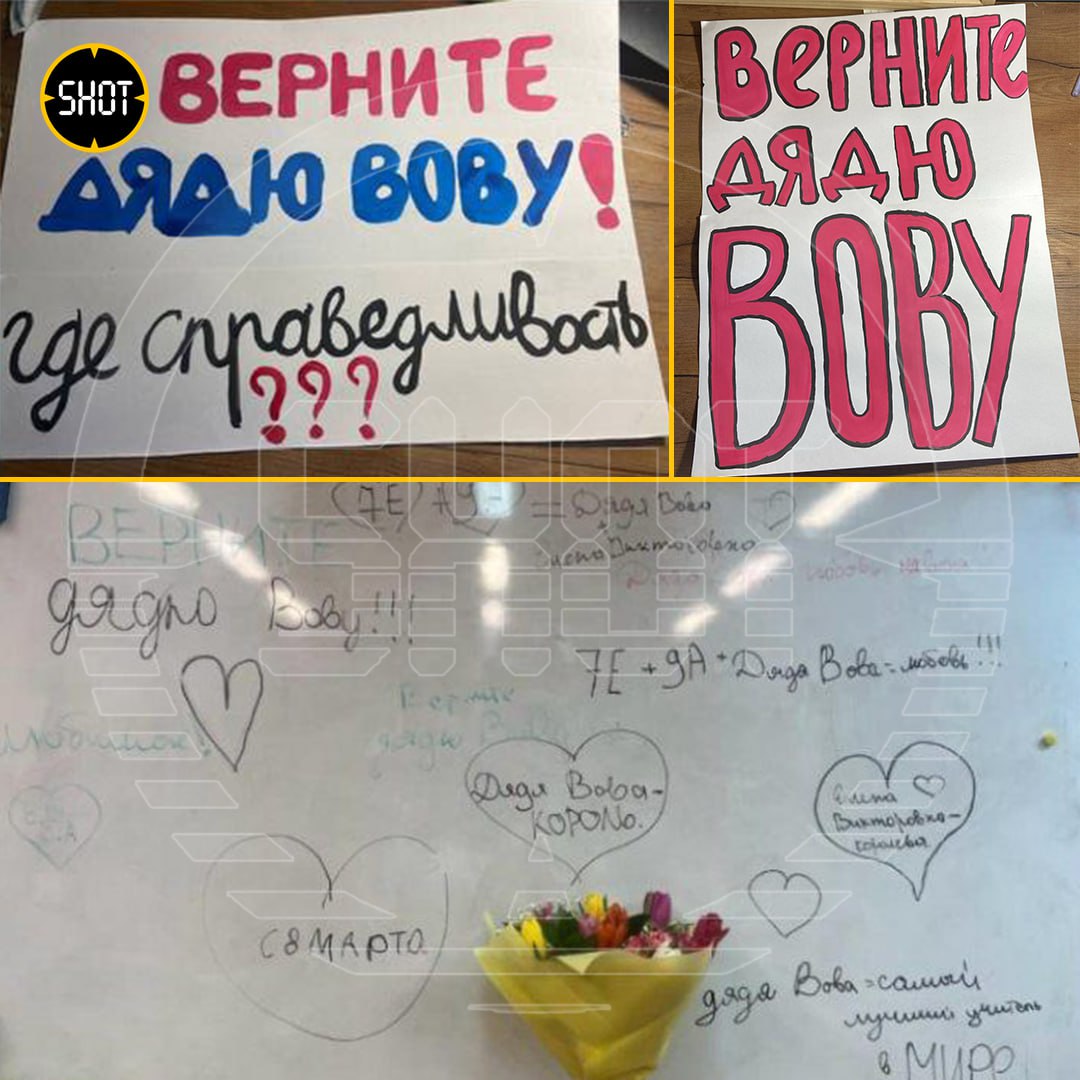 SHOT
ВЕРНИТЕ
ДЯДЮ ВОВУ!
где справедливость
???
ВЕРНИТЕ
ДЯДЮ
ВОВУ
SHOT
ВЕРНИТЕ
дядю Вову!!!
7Е
= Дядя Вова
Елена Викторовна
7Е + 9А + Дядя Вова = любовь!!!
Верните
дядю Вову
Дядя Вова-
КОРОЛЬ.
Елена
Викторовна-
королева
С 8 МАРТА
дядя Вова = самый
лучший учитель
в МИРЕ